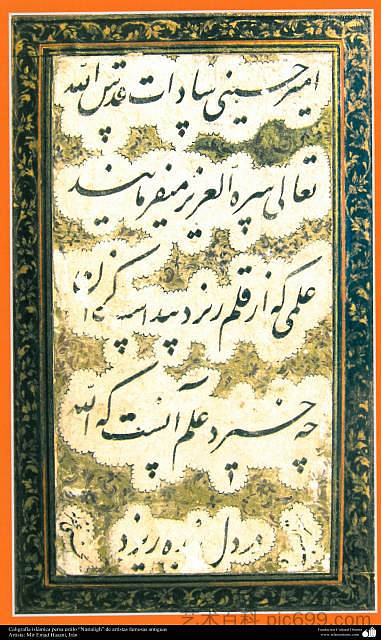 امیر حسینی سادات قدس الله
تعالی سره العزیز میفرمایند
علمی که از قلم ریزد پیداست کزان
چه خیزد علم آنست که الله
در دل بنده ریزد
Caligrafía islámica persa estilo "Nastaligh" de artistas famosas antiguas
Artista: Mir Emad Hasani, Irán
Fundación Cultural Oriente
艺术百科 pic699.com